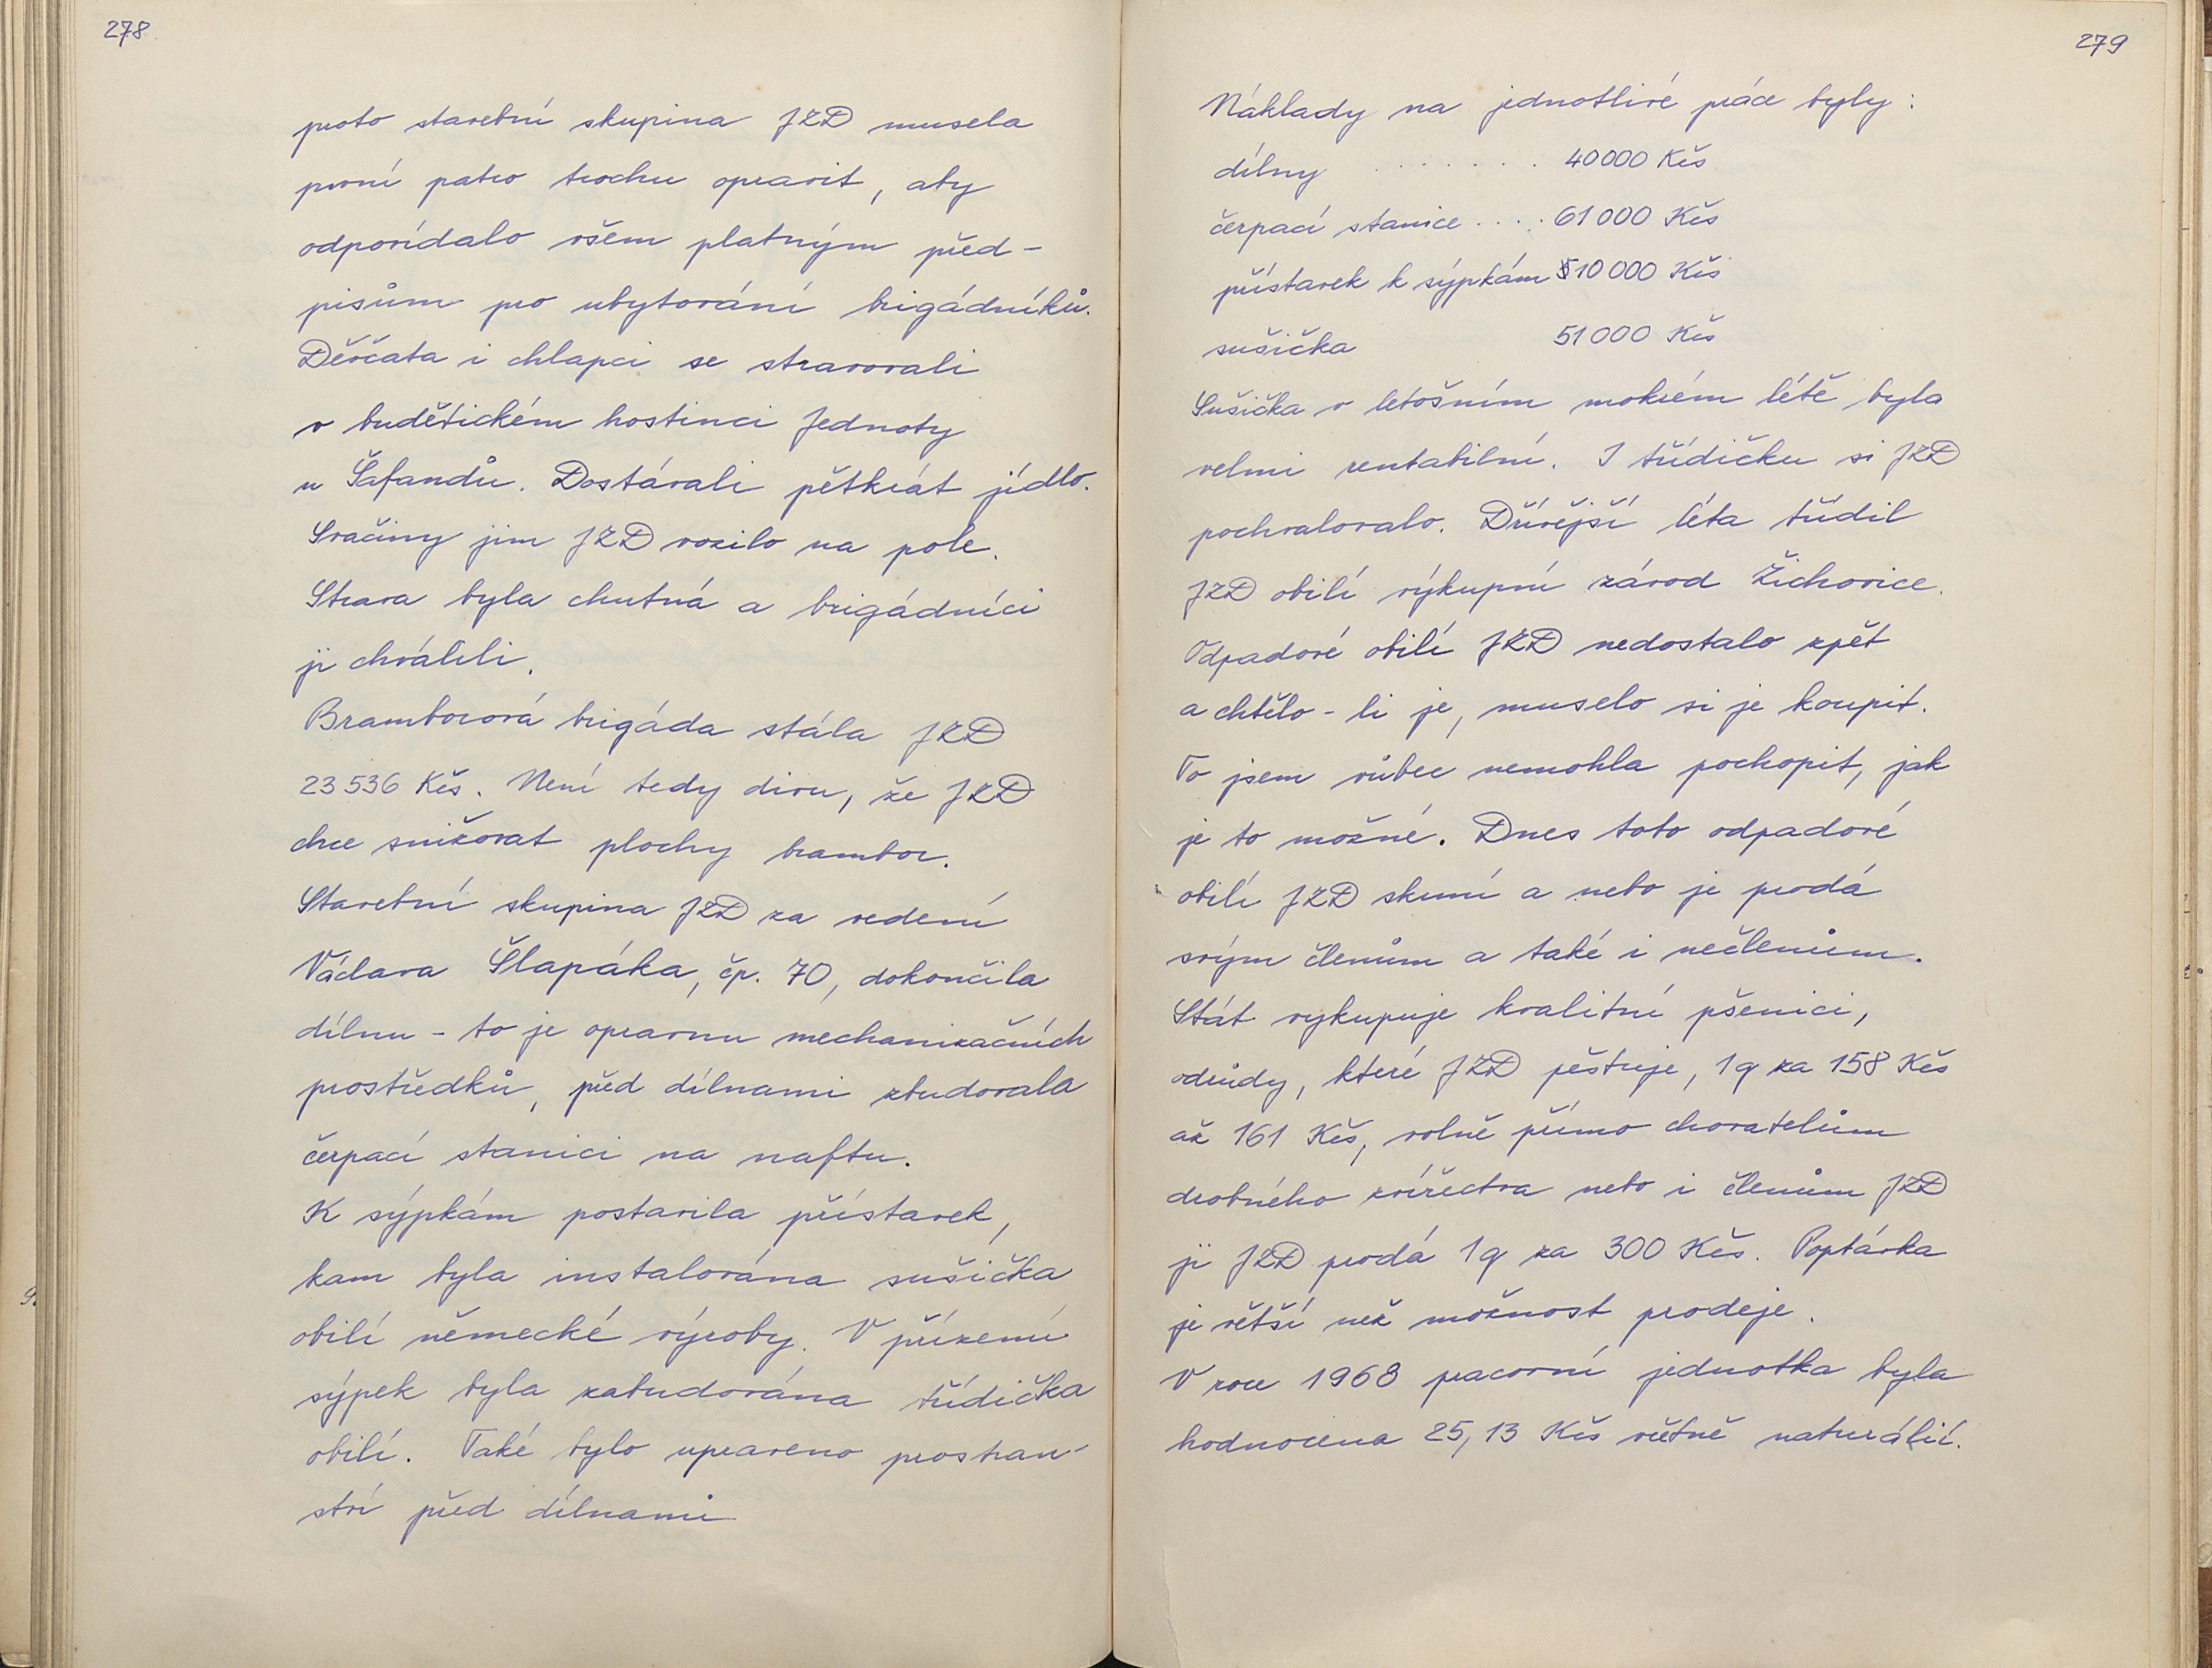 278
proto stavební skupina JZD musela
první patro trochu opravit, aby
odpovídalo všem platným před-
pisům pro ubytování brigádníků.
Děvčata i chlapci se stravovali
v budětickém hostinci Jednoty
u Šafandů. Dostávali pětkrát jídlo.
Svačiny jim JZD vozilo na pole.
Strava byla chutná a brigádníci
ji chválili.
Bramborová brigáda stála JZD
23 536 Kčs. Není tedy divu, že JZD
chce snižovat plochy brambor.
Stavební skupina JZD za vedení
Václava Šlapáka, čp. 70, dokončila
dílnu - to je opravnu mechanizačních
prostředků, před dílnami zbudovala
čerpací stanici na naftu.
K sýpkám postavila přístavek,
kam byla instalována sušička
obilí německé výroby. V přízemí
sýpek byla zabudována třídička
obilí. Také bylo upraveno prostran-
ství před dílnami
279
Náklady na jednotlivé práce byly:
dílny . . . . . . . 40 000 Kčs
čerpací stanice . . . . 61 000 Kčs
přístavek k sýpkám 10 000 Kčs
sušička 51 000 Kčs
Sušička v letošním mokrém létě byla
velmi rentabilní. I třídičku si JZD
pochvalovalo. Dřívější léta třídil
JZD obilí výkupní závod Žichovice.
Odpadové obilí JZD nedostalo zpět
a chtělo-li je, muselo si je koupit.
To jsem vůbec nemohla pochopit, jak
je to možné. Dnes toto odpadové
obilí JZD skrmí a nebo je prodá
svým členům a také i nečlenům.
Stát vykupuje kvalitní pšenici,
odrůdy, které JZD pěstuje, 1 q za 158 Kčs
až 161 Kčs, volně přímo chovatelům
drobného zvířectva nebo i členům JZD
ji JZD prodá 1 q za 300 Kčs. Poptávka
je větší než možnost prodeje.
V roce 1968 pracovní jednotka byla
hodnocena 25,13 Kčs včetně naturálií.